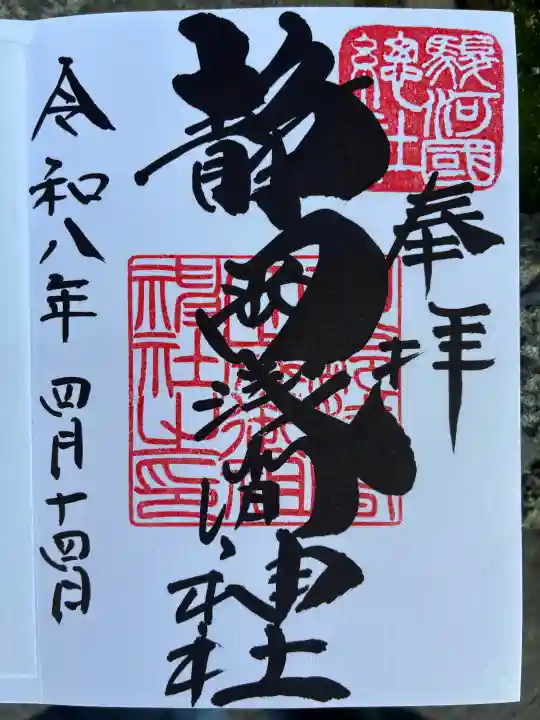 駿河國
總社
奉拝
静岡浅間神社
令和八年 四月十四日